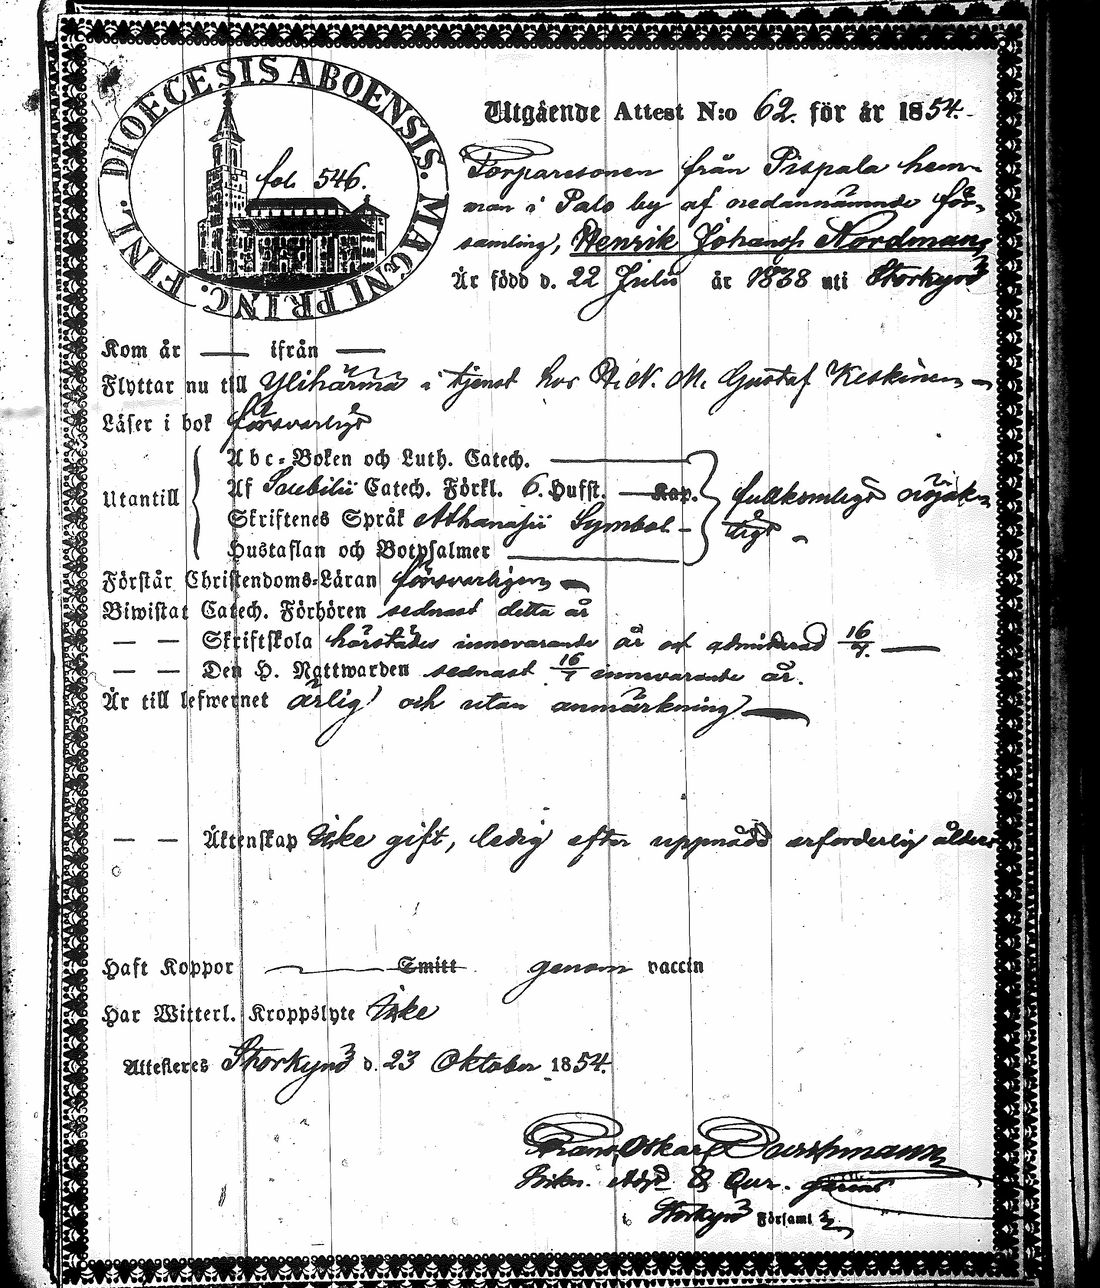 DIOECESIS ABOENSIS. MAGNI PRINC. FINL.
fol. 546.
Utgående Attest N:o 62. för år 1854.
Torparesonen från Pispala hem-
man i Palo by af nedannämnde för-
samling, Henrik Johansson Nordman,
Är född d. 22 Julii år 1838 uti Storkyrö
Kom år — ifrån —
Flyttar nu till Ylihärmä i tjenst hos N. N. M. Gustaf Keskinen
Läser i bok försvarligt
Utantill
Abc-Boken och Luth. Catech. —
Af Svebilii Catech. Förkl. 6. Hufst. — Kap.
Skriftenes Språk Athanasii Symbol –
Hustaflan och Botpsalmer —
fullkomligt nöjak-
tigt
Förstår Christendoms-Läran försvarligen —
Biwistat Catech. Förhören sednast detta år
— — Skriftskola härstädes innevarande år och admitterad 16/7. —
— — Den H. Nattwarden sednast 16/7 innevarande år.
Är till lefwernet ärlig och utan anmärkning —
— — Äktenskap icke gift, ledig efter uppnådd erforderlig ålder
Haft Koppor — Smitt genom vaccin
Har Witterl. Kroppslyte icke
Attesteres Storkyrö d. 23 Oktober 1854.
Frans Oskar Durchman
Adj. & Cur.
i Storkyrö Församl